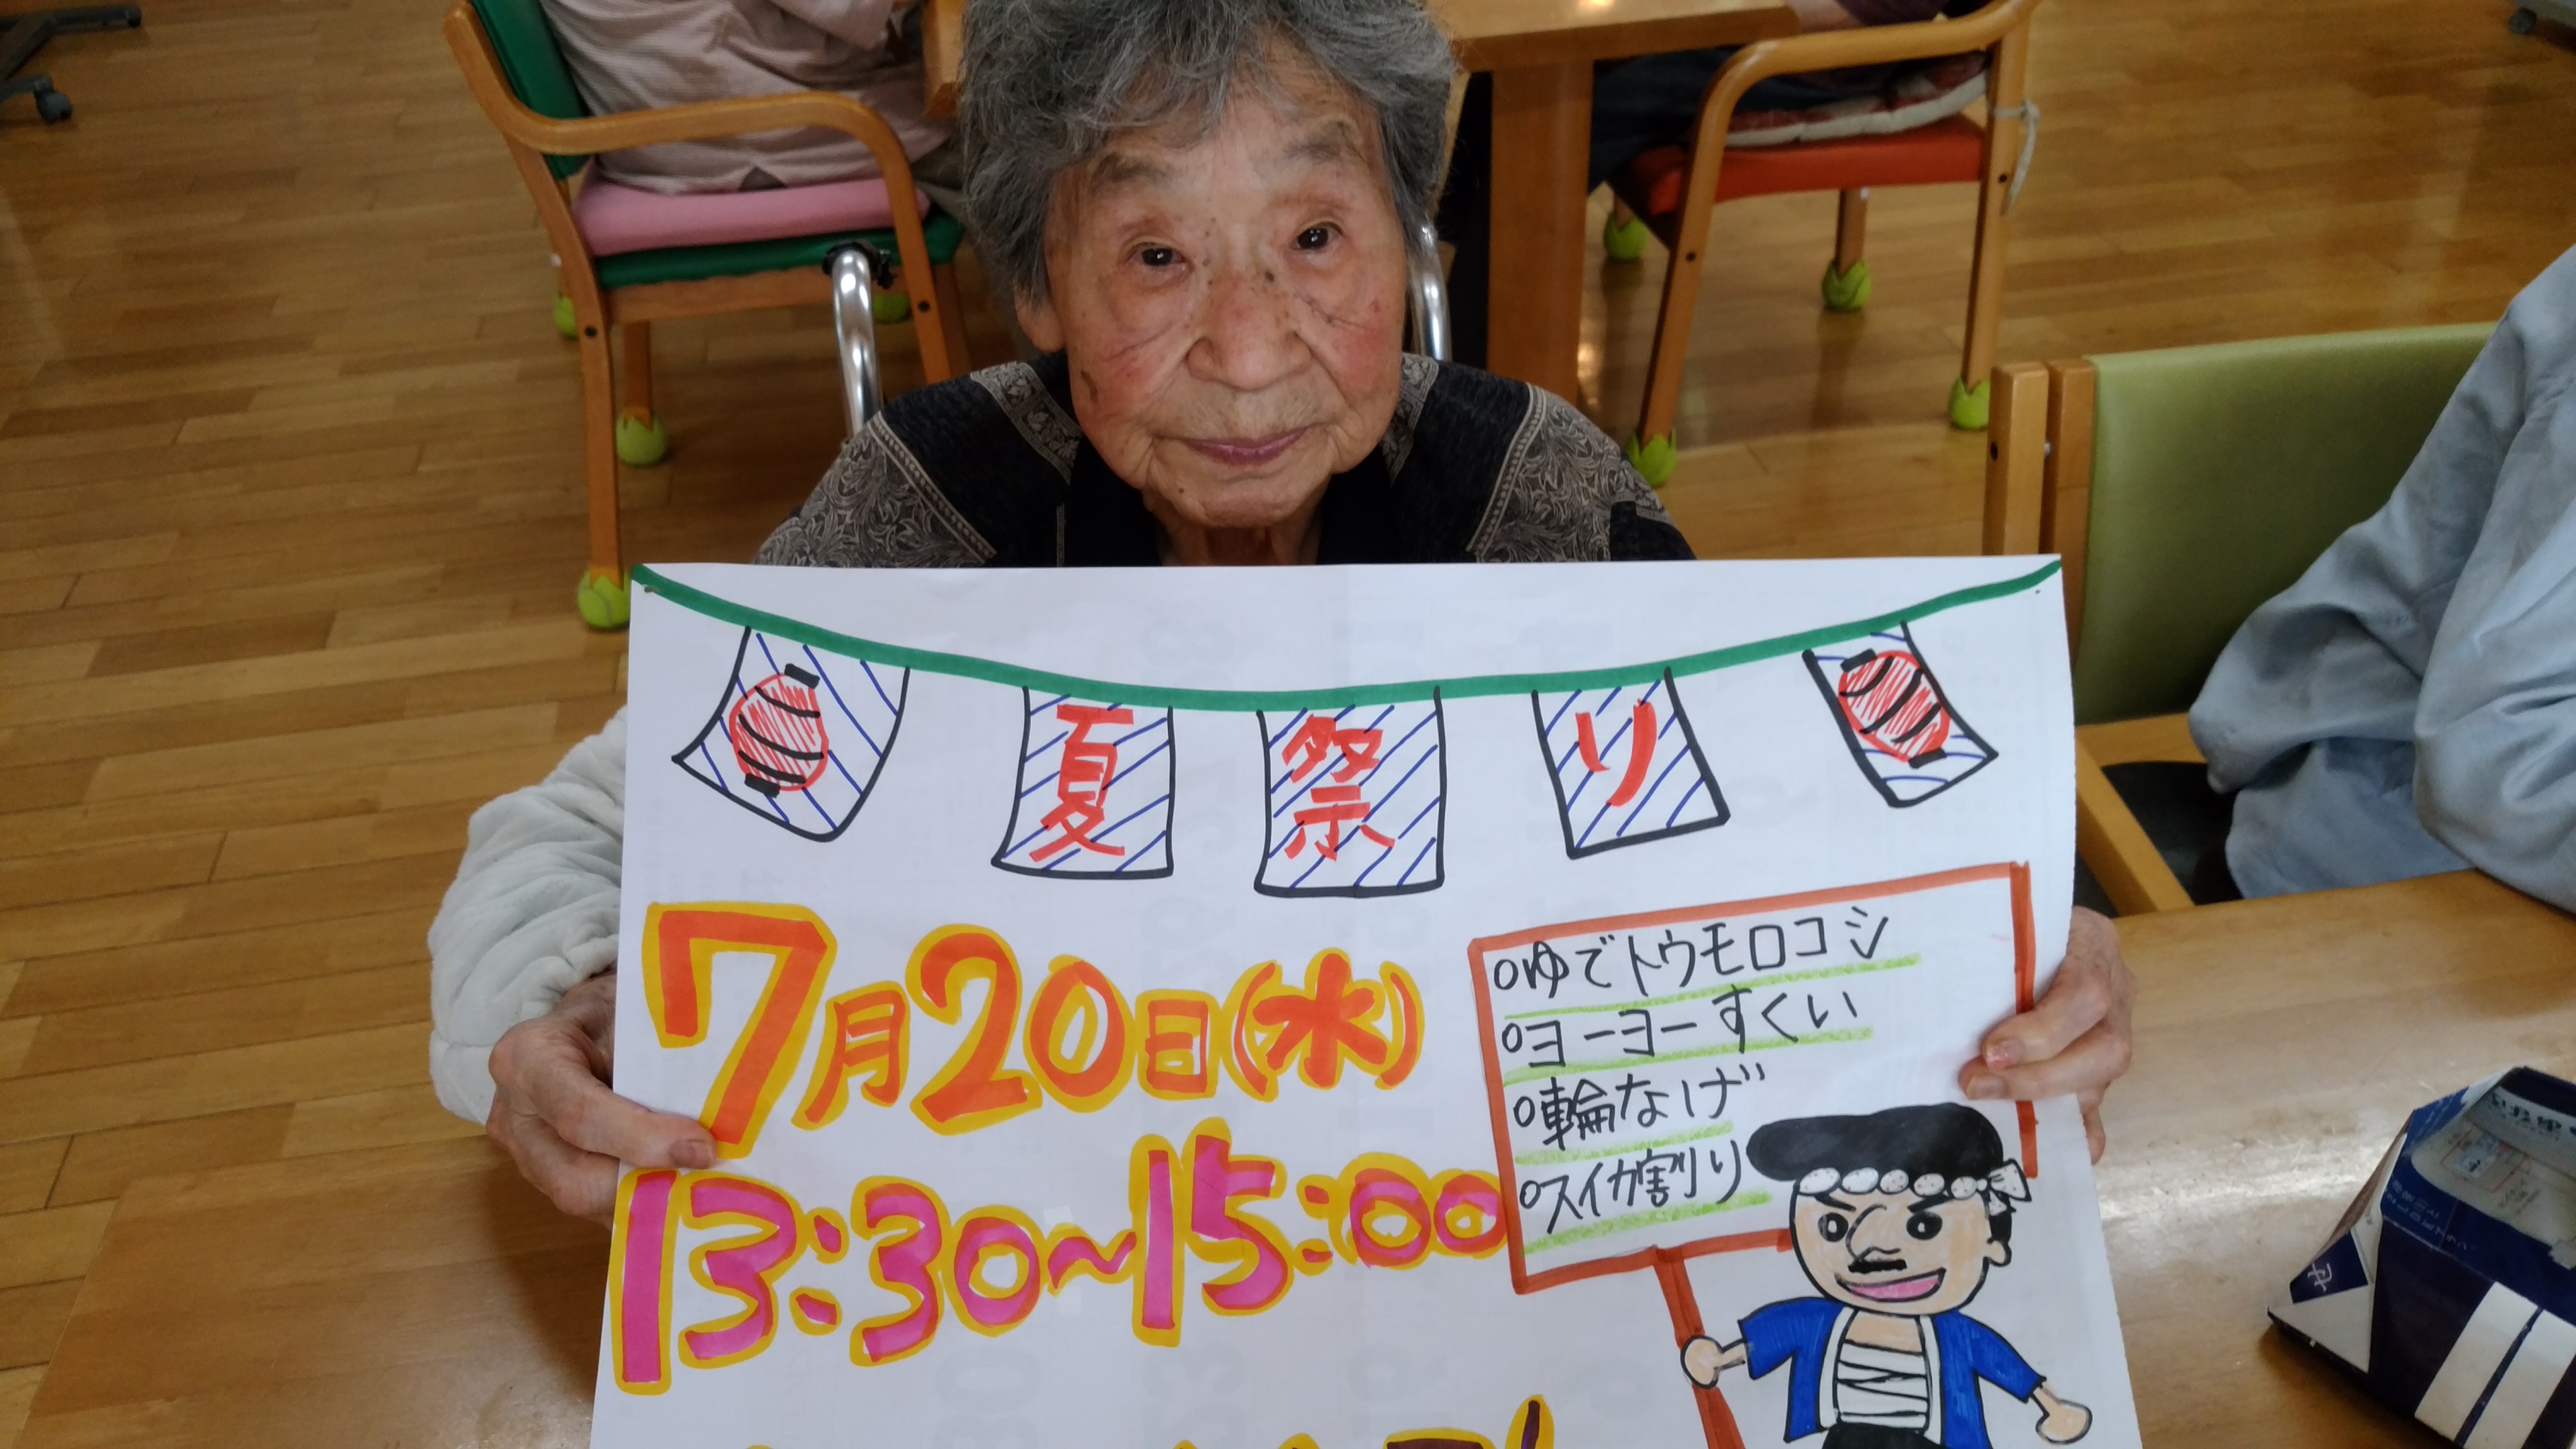 夏祭り
7月20日(水)
13:30~15:00
ゆでトウモロコシ
ヨーヨーすくい
輪なげ
スイカ割り